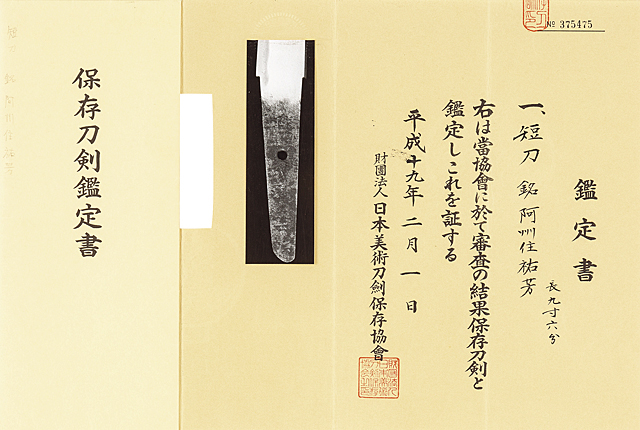 № 375475
鑑定書
一、短刀 銘 阿州住祐芳
長九寸六分
右は當協會に於て審査の結果保存刀剣と
鑑定しこれを証する
平成十九年二月一日
財團法人 日本美術刀劍保存協會
保存刀剣鑑定書